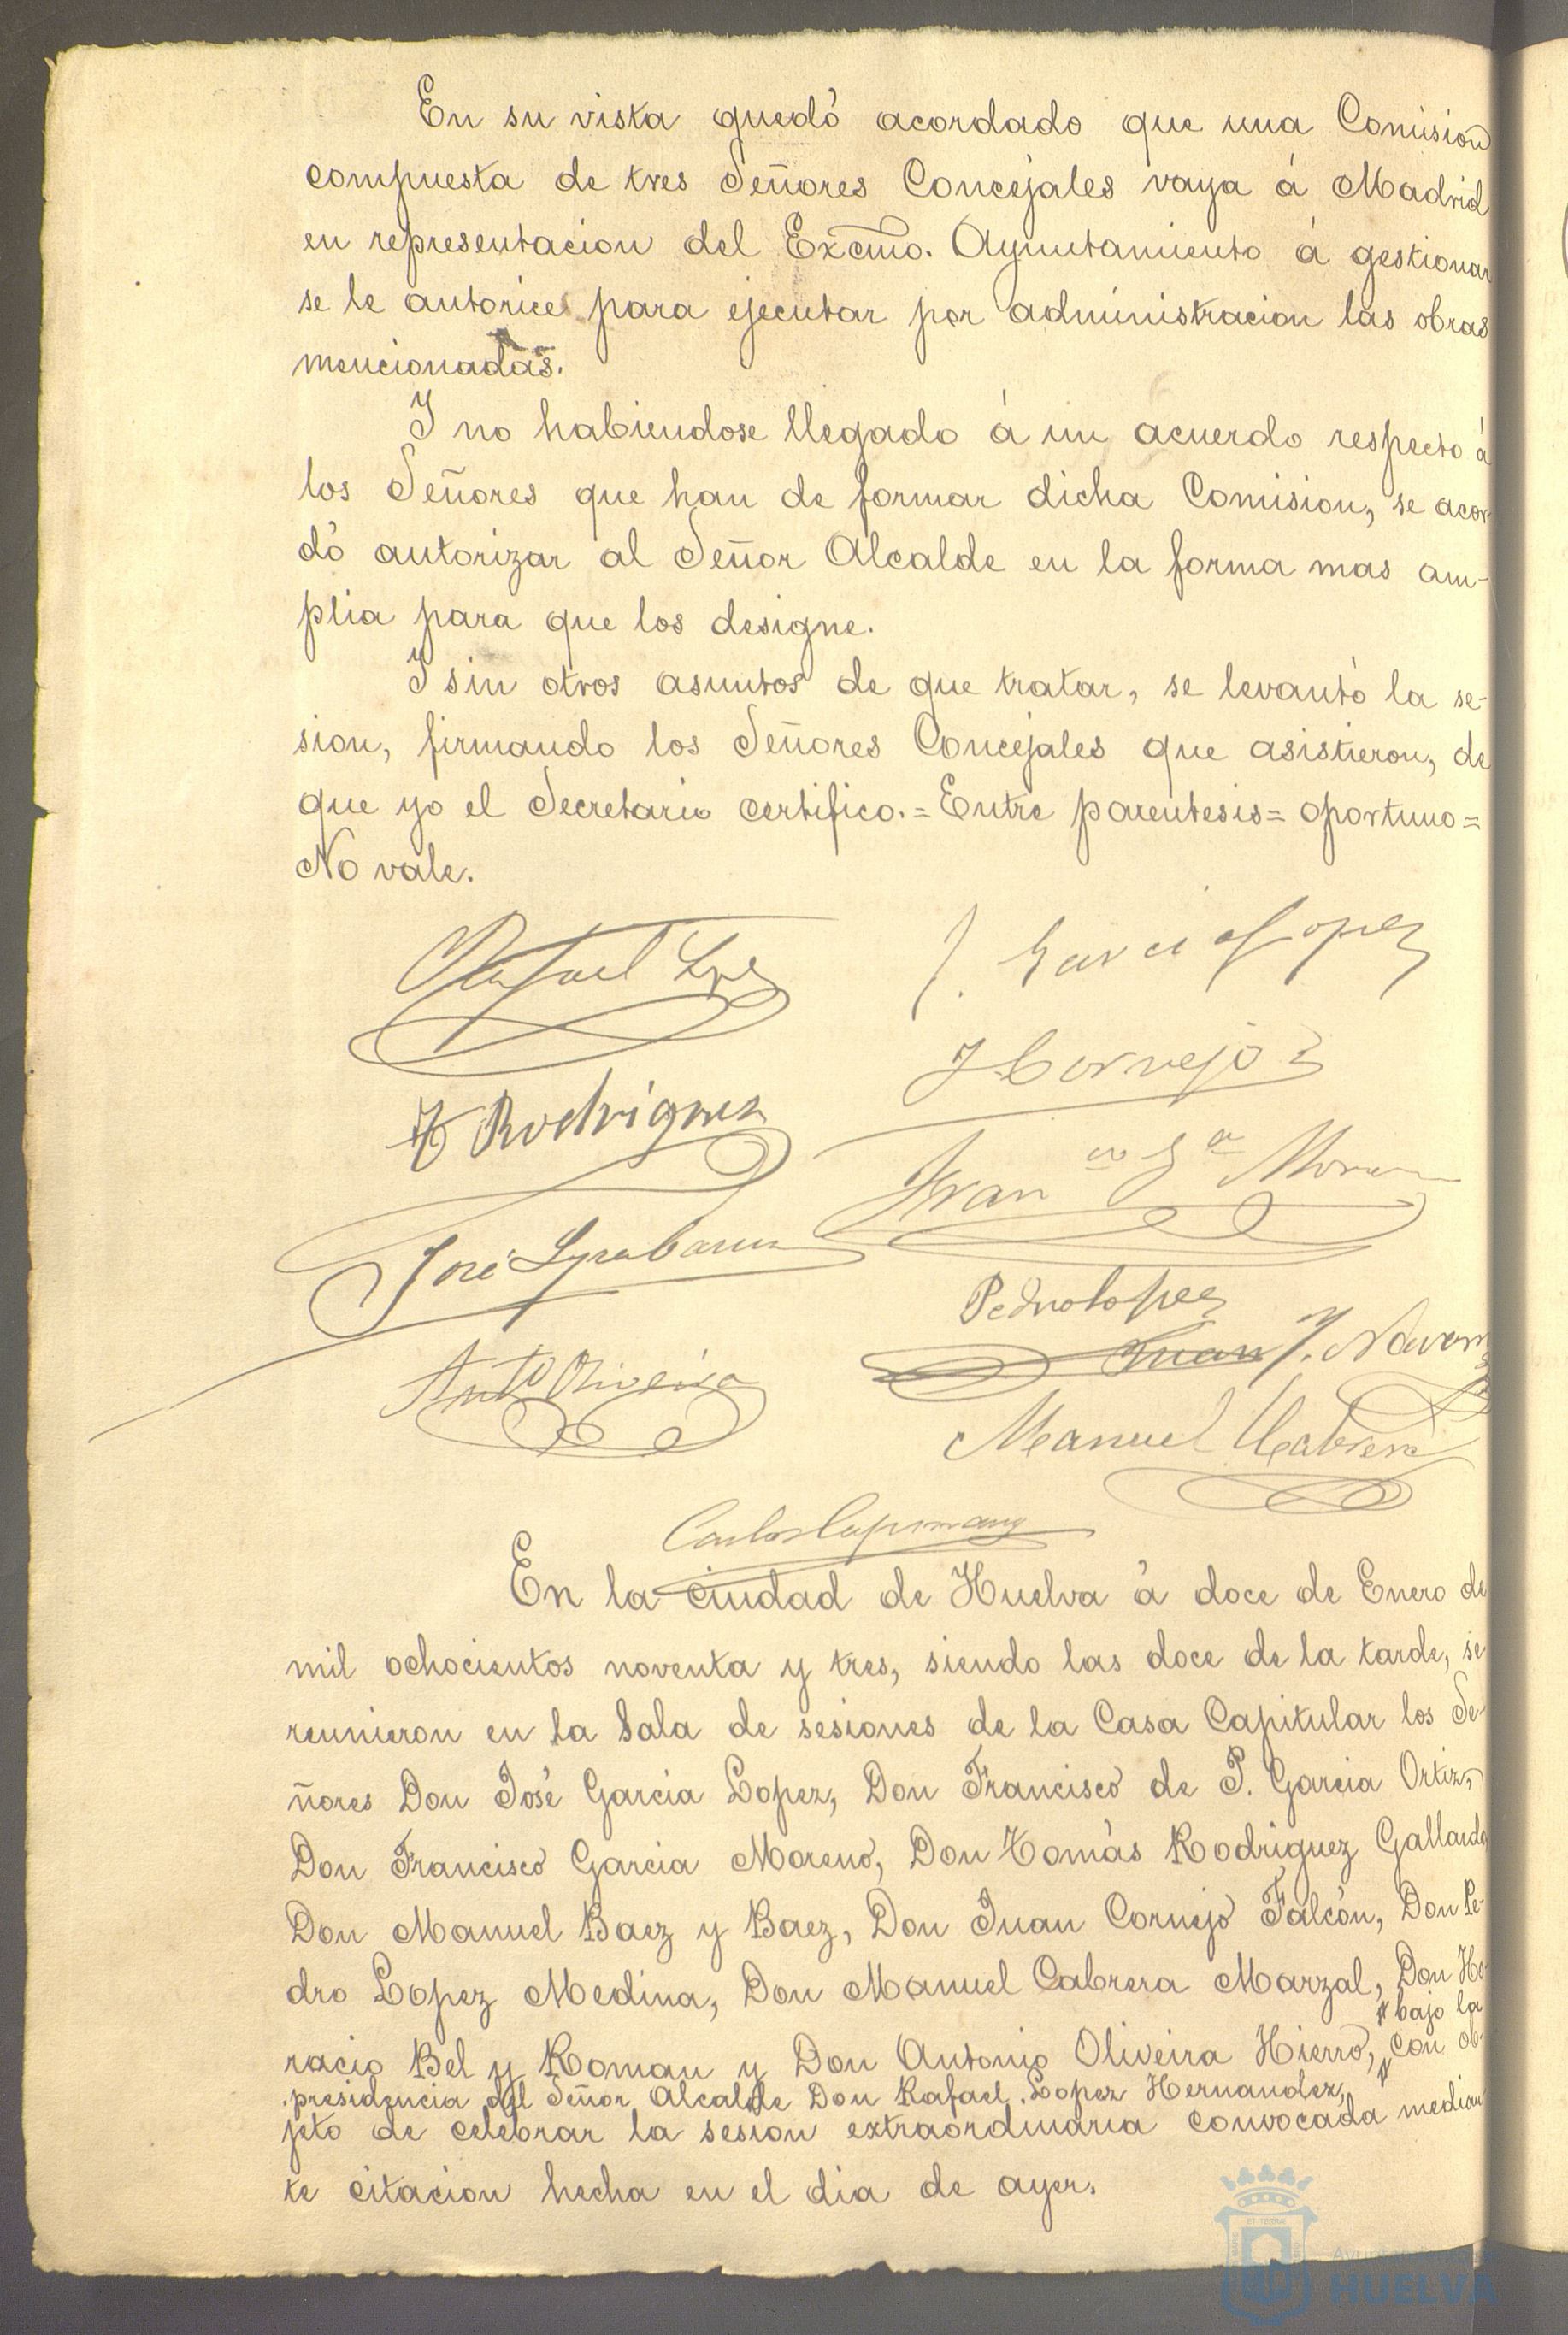 En su vista quedó acordado que una Comision
compuesta de tres Señores Concejales vaya á Madrid
en representacion del Excmo. Ayuntamiento á gestionar
se le autorice para ejecutar por administracion las obras
mencionadas.
Y no habiendose llegado á un acuerdo respecto á
los Señores que han de formar dicha Comision, se acor
dó autorizar al Señor Alcalde en la forma mas am-
plia para que los designe.
Y sin otros asuntos de que tratar, se levantó la se-
sion, firmando los Señores Concejales que asistieron, de
que yo el Secretario certifico.= Entre parentesis= oportuno=
No vale.
Rafael Lopez
J. Garcia Lopez
J Cornejo
T Rodriguez
Fran co Ga Moreno
José
Pedro Lopez
Juan J. Navarro
Anto Oliveira
Manuel Cabrera
Carlos
En la ciudad de Huelva á doce de Enero de
mil ochocientos noventa y tres, siendo las doce de la tarde, se
reunieron en la Sala de sesiones de la Casa Capitular los Se-
ñores Don José Garcia Lopez, Don Francisco de P. Garcia Ortiz,
Don Francisco Garcia Moreno, Don Tomás Rodriguez Gallardo
Don Manuel Baez y Baez, Don Juan Cornejo Falcón, Don Pe-
dro Lopez Medina, Don Manuel Cabrera Marzal, Don Ho-
bajo la
racio Bel y Roman y Don Antonio Oliveira Hierro, con ob-
presidencia del Señor Alcalde Don Rafael Lopez Hernandez,
jeto de celebrar la sesion extraordinaria convocada median
te citacion hecha en el dia de ayer.
HUELVA